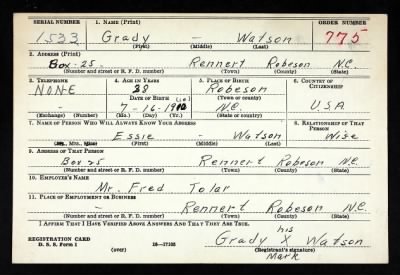 SERIAL NUMBER 1. NAME (Print) ORDER NUMBER
1533 Grady - Watson 775
(First) (Middle) (Last)
2. ADDRESS (Print)
Box-25. Rennert Robeson N.C.
(Number and street or R. F. D. number) (Town) (County) (State)
3. TELEPHONE 4. AGE IN YEARS 5. PLACE OF BIRTH 6. COUNTRY OF CITIZENSHIP
NONE 28 Robeson
DATE OF BIRTH (Town or county)
7-16-1912 N.C. U.S.A
(Exchange) (Number) (Mo.) (Day) (Yr.) (State or country)
7. NAME OF PERSON WHO WILL ALWAYS KNOW YOUR ADDRESS 8. RELATIONSHIP OF THAT PERSON
Essie - Watson Wife
(Mr., Mrs., Miss) (First) (Middle) (Last)
9. ADDRESS OF THAT PERSON
Box 25 Rennert Robeson N.C.
(Number and street or R. F. D. number) (Town) (County) (State)
10. EMPLOYER'S NAME
Mr. Fred Tolar
11. PLACE OF EMPLOYMENT OR BUSINESS
- Rennert Robeson N.C.
(Number and street or R. F. D. number) (Town) (County) (State)
I AFFIRM THAT I HAVE VERIFIED ABOVE ANSWERS AND THAT THEY ARE TRUE.
his
Grady X Watson
REGISTRATION CARD
D. S. S. Form 1 (over) 16-17105 (Registrant's signature)
Mark